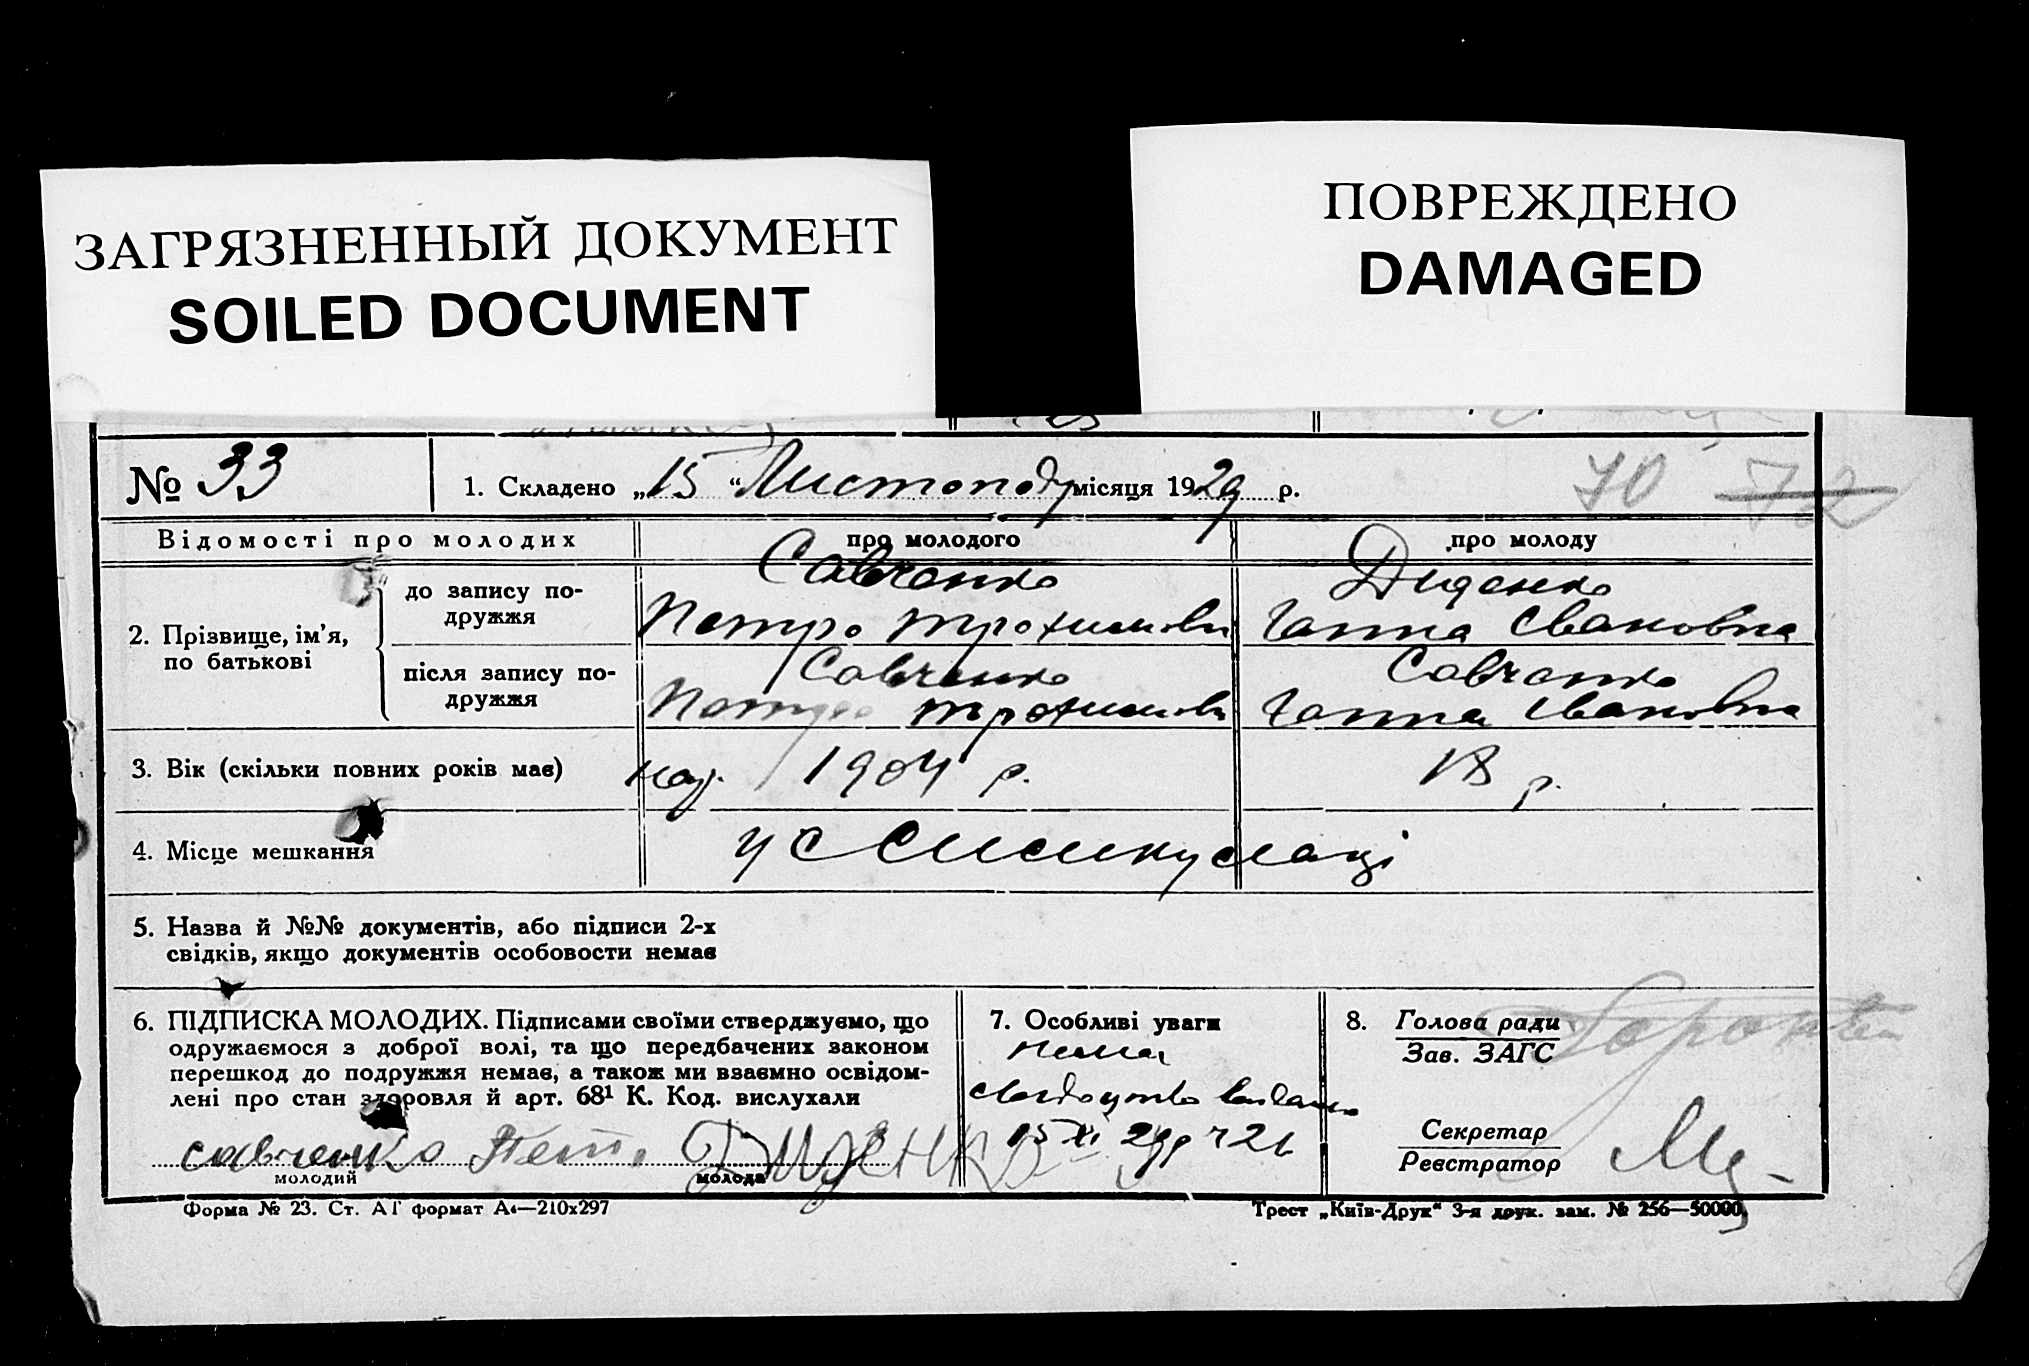 ЗАГРЯЗНЕННЫЙ ДОКУМЕНТ
SOILED DOCUMENT
ПОВРЕЖДЕНО
DAMAGED
№ 33
1. Складено „15“ Листопаду місяця 1929 р.
70 72
Відомості про молодих
про молодого
про молоду
2. Прізвище, ім’я, по батькові
до запису подружжя
Савченко
Петро Трохимови
Диденко
Ганна Івановна
після запису подружжя
Савченко
Петро Трохимови
Савченко
Ганна Івановна
3. Вік (скільки повних років має)
нар. 1904 р.
18 р.
4. Місце мешкання
у с
5. Назва й №№ документів, або підписи 2-х
свідків, якщо документів особовости немає
6. ПІДПИСКА МОЛОДИХ. Підписами своїми стверджуємо, що
одружаємося з доброї волі, та що передбачених законом
перешкод до подружжя немає, а також ми взаємно освідом-
лені про стан здоровля й арт. 68¹ К. Код. вислухали
савченко Пет
Диденко
молодий
молода
7. Особливі уваги
нема
15 XI 29р ч 21
8. Голова ради
Зав. ЗАГС
Секретар
Реєстратор
Форма № 23. Ст. АГ формат А4—210х297
Трест „Київ-Друк“ 3-я друк. зам. № 256—50000.